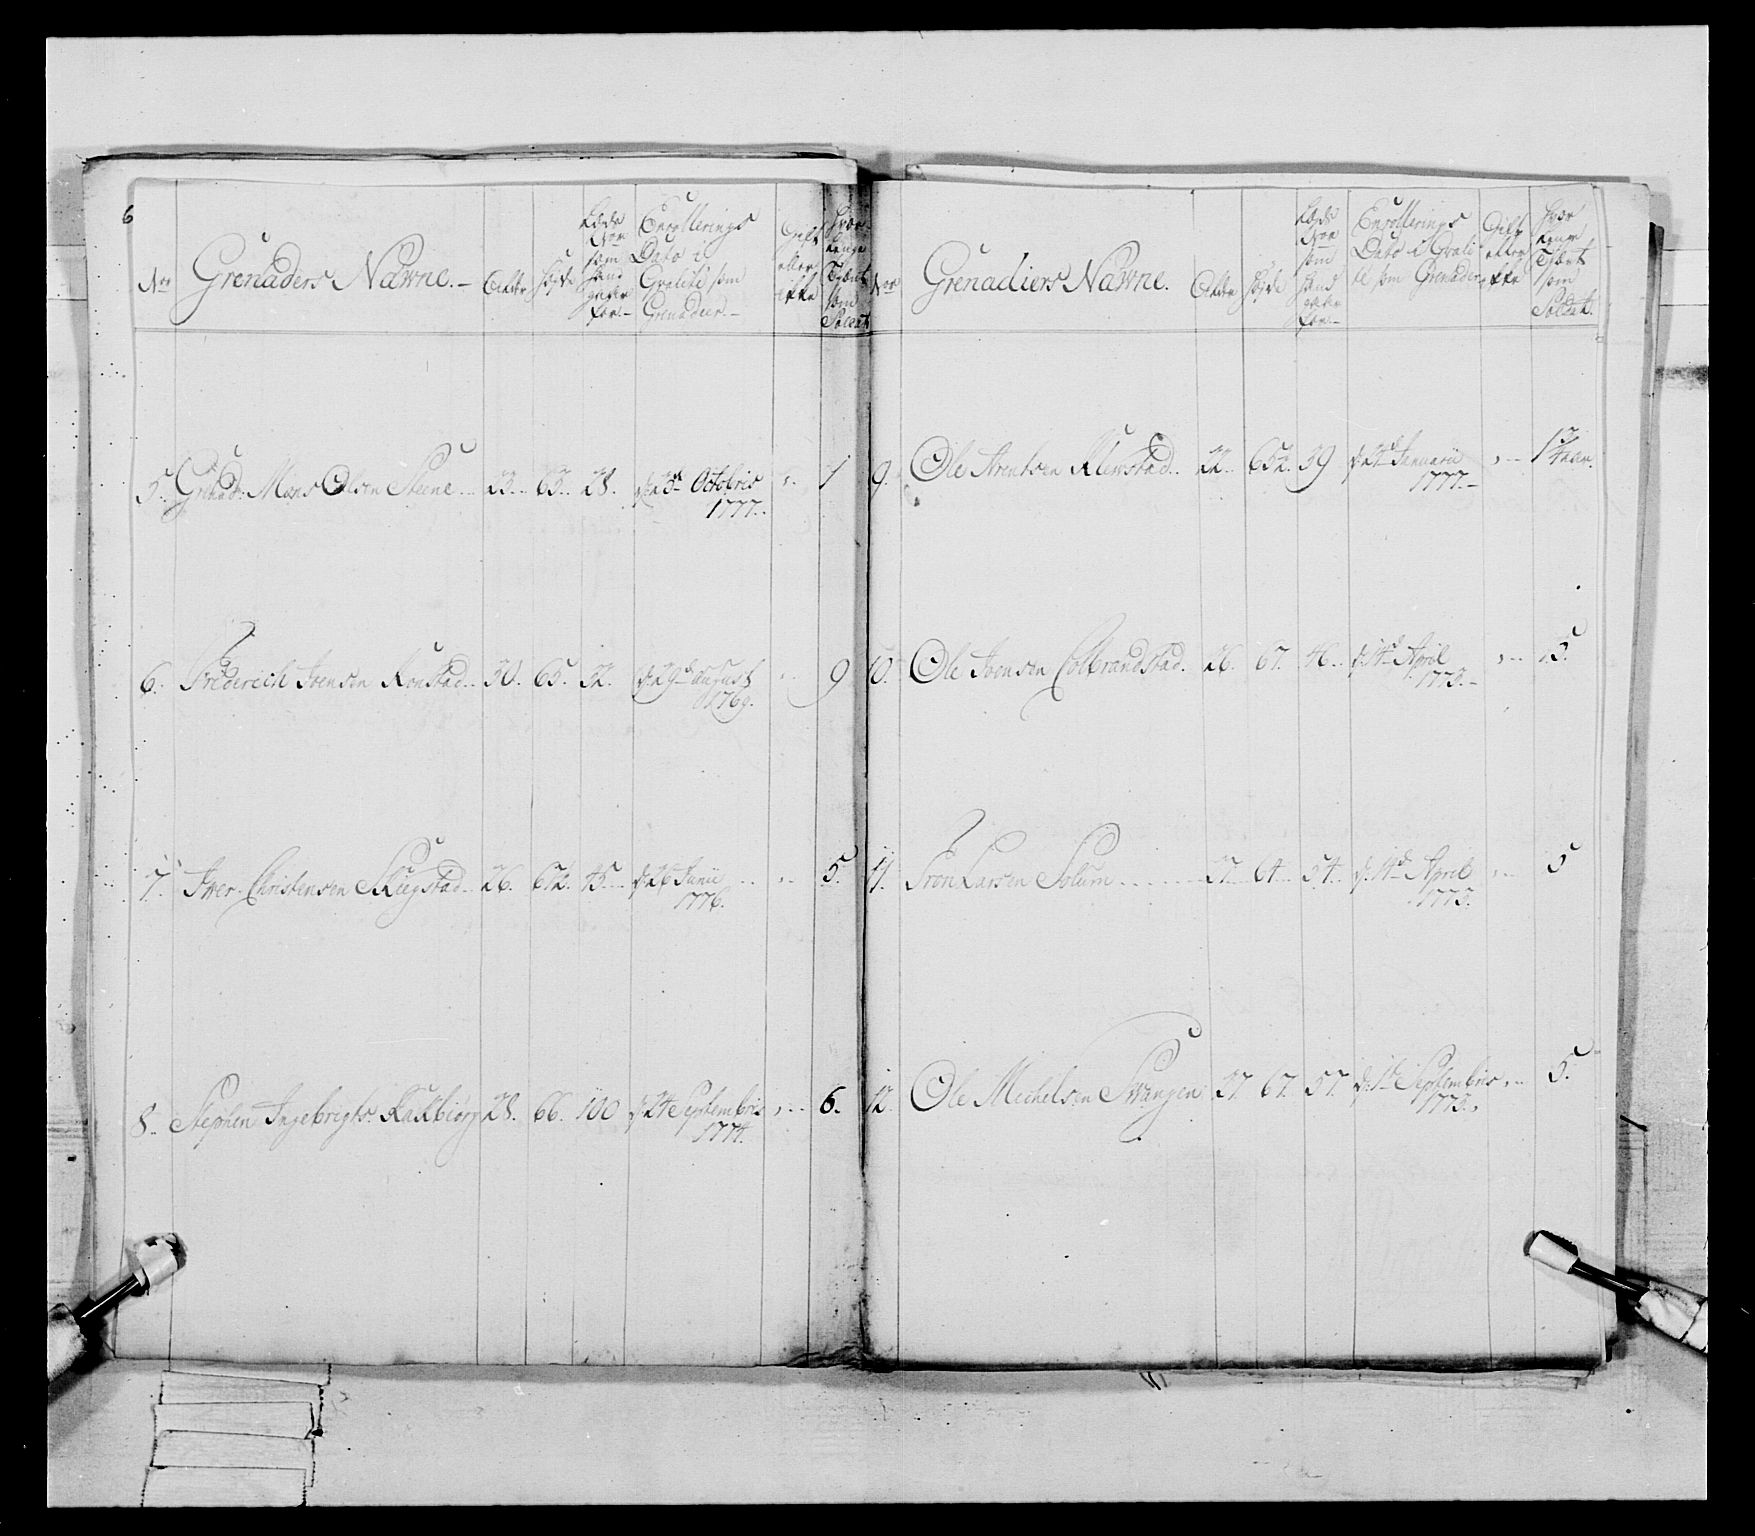 6
Nro Grenaders Nawne. Alder Høyde Lægds Nro som hand giver for Enrollerings Dato i Qvalité som Grenadeer Gift eller ikke Hvor Længe Tjent som Soldat
5. Grenad: Mons Olsen Steene 23 65 28. d: 23de Octobris 1777. 1
6. Friderich Ivensen Ronstad 30. 65. 32. d: 29de august 1769. 9
7. Iver Christensen Skugstad 26. 67½. 45. d: 26 Junii 1776. 5.
8. Stephen Ingebrigts. Kalbiørg 28. 66. 100 d: 24 Septembris 1774. 6.
Nro Grenadiers Nawne. Alder Høyde Lægds Nro som hand giver for Enrollerings Dato i Qvalité som Grenadeer Gift eller ikke Hvor Længe Tjent som Soldat.
9. Ole Arentsen Klevstad 22 65½. 59 Januarii 1777. aar.
10. Ole Ivensen Colbrandstad. 26. 67. 46. d: 14de April 1773. 5.
11. Tron Larsen Solum 27 64 54 d: 14de April 1773. 5
12. Ole Michelsen Svangen 27. 67. 57. d: 1te Septembris 1773. 5.